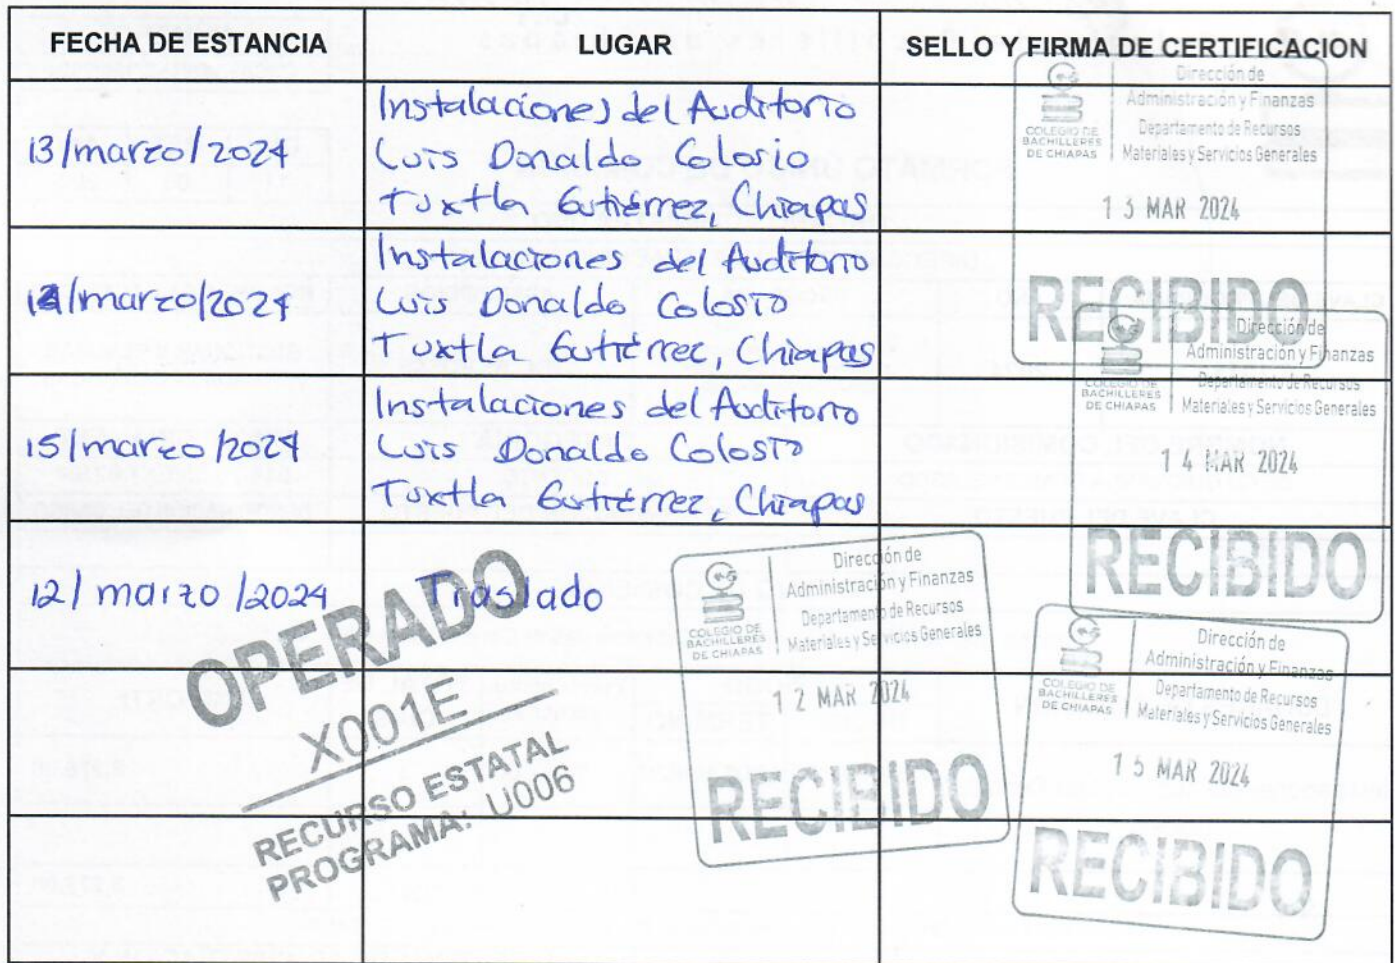 FECHA DE ESTANCIA
LUGAR
SELLO Y FIRMA DE CERTIFICACION
13/marzo/2024
Instalaciones del Auditorio
Luis Donaldo Colosio
Tuxtla Gutiérrez, Chiapas
COLEGIO DE
BACHILLERES
DE CHIAPAS
Dirección de
Administración y Finanzas
Departamento de Recursos
Materiales y Servicios Generales
13 MAR 2024
RECIBIDO
14/marzo/2024
Instalaciones del Auditorio
Luis Donaldo Colosio
Tuxtla Gutiérrez, Chiapas
COLEGIO DE
BACHILLERES
DE CHIAPAS
Dirección de
Administración y Finanzas
Departamento de Recursos
Materiales y Servicios Generales
14 MAR 2024
RECIBIDO
15/marzo/2024
Instalaciones del Auditorio
Luis Donaldo Colosio
Tuxtla Gutiérrez, Chiapas
12/marzo/2024
Traslado
OPERADO
X001E
RECURSO ESTATAL
PROGRAMA: U006
COLEGIO DE
BACHILLERES
DE CHIAPAS
Dirección de
Administración y Finanzas
Departamento de Recursos
Materiales y Servicios Generales
12 MAR 2024
RECIBIDO
COLEGIO DE
BACHILLERES
DE CHIAPAS
Dirección de
Administración y Finanzas
Departamento de Recursos
Materiales y Servicios Generales
15 MAR 2024
RECIBIDO